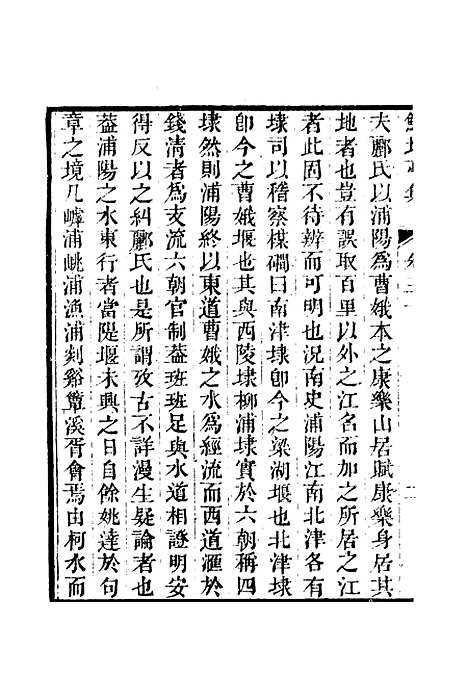 夫酈氏以浦陽爲曹娥本之康樂山居賦康樂身居其
地者也豈有誤取百里以外之江名而加之所居之江
者此固不待辨而可明也況南史浦陽江南北津各有
埭司以稽察楳礀曰南津埭卽今之梁湖堰也北津埭
卽今之曹娥堰也其與西陵埭柳浦埭實於六朝稱四
埭然則浦陽終以東道曹娥之水爲經流而西道滙於
錢清者爲支流六朝官制葢班班足與水道相證明安
得反以之糾酈氏也是所謂攷古不詳漫生疑論者也
葢浦陽之水東行者當隄堰未興之日自餘姚達於句
章之境凡嶀浦㟁浦漁浦剡谿簟溪胥會焉由柯水而